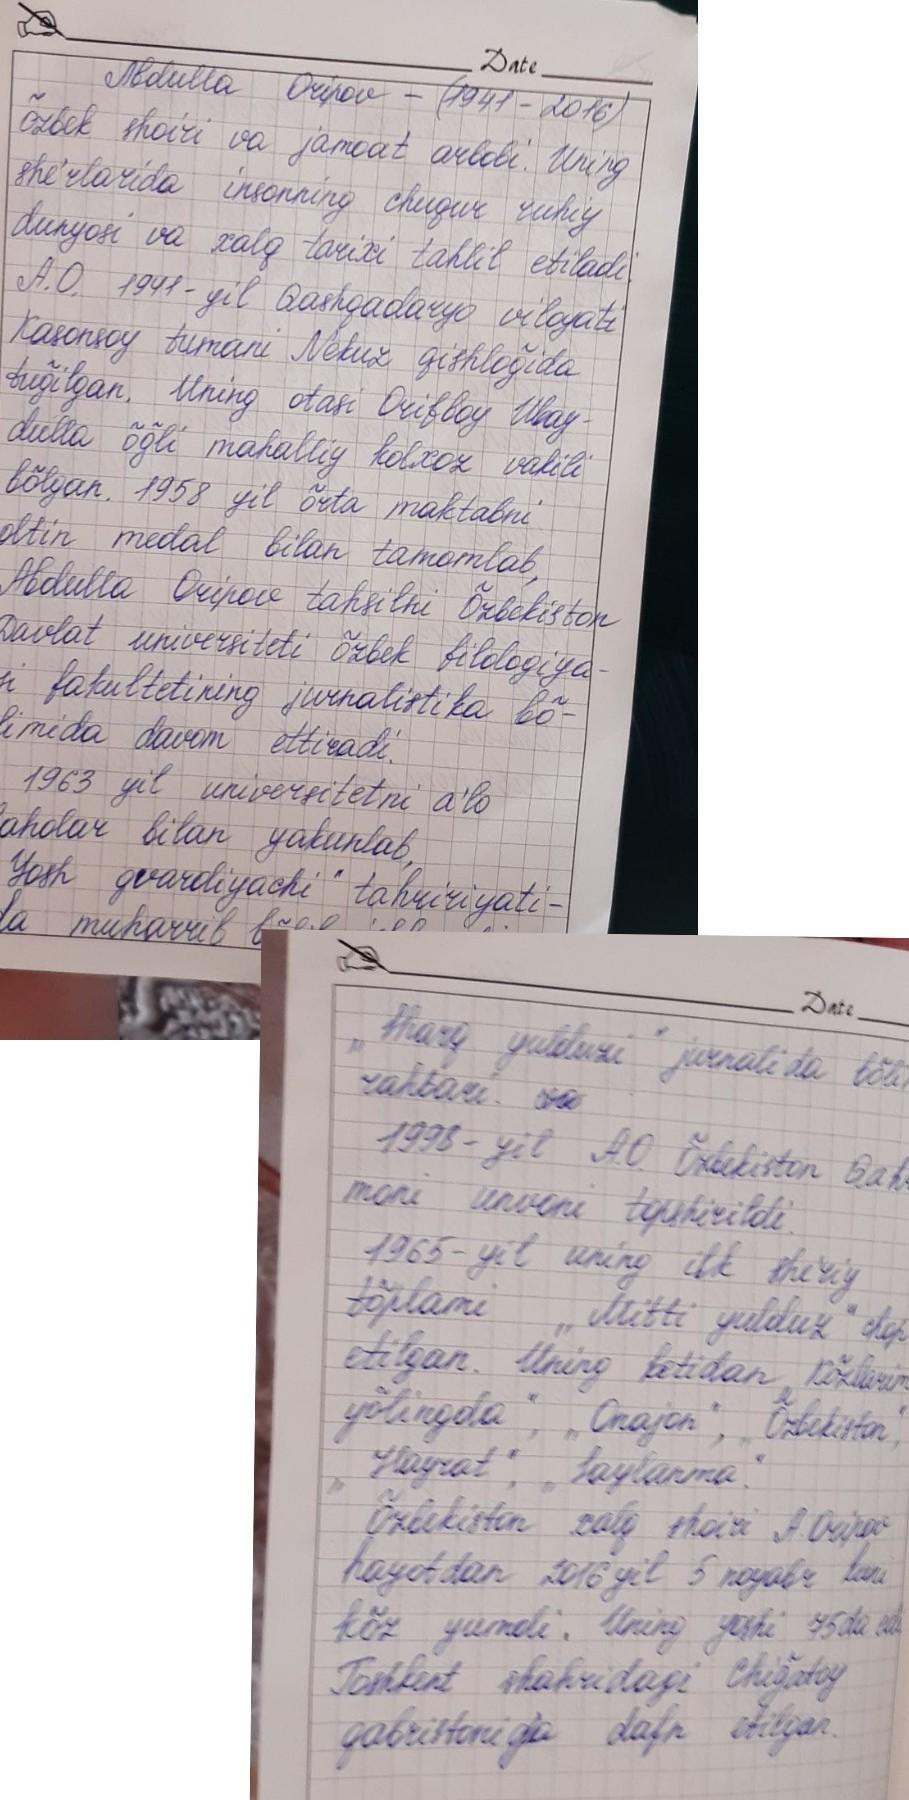 Date
Abdulla Oripov - (1941 - 2016)
õzbek shoiri va jamoat arbobi. Uning
she'rlarida insonning chuqur ruhiy
dunyosi va xalq tarixi tahlil etiladi.
A.O. 1941-yil Qashqadaryo viloyati
Kasonsoy tumani Nekuz qishloğida
tuğilgan. Uning otasi Orifboy Ubay-
dulla õğli mahalliy kolxoz vakili
bõlgan. 1958 yil õrta maktabni
oltin medal bilan tamomlab,
Abdulla Oripov tahsilni Õzbekiston
Davlat universiteti õzbek filologiya-
si fakultetining jurnalistika bõ-
limida davom ettiradi.
1963 yil universitetni a'lo
baholar bilan yakunlab,
Yosh gvardiyachi" tahririyati-
da muharrib
Date
„Sharq yulduzi" jurnalida bõli
rahbari.
1998-yil A.O. Õzbekiston Qah
moni unvoni topshirildi.
1965-yil uning ilk she'riy
tõplami „Mitti yulduz" chop
etilgan. Uning ketidan „Kõzlarim
yõlingda", „Onajon", „Õzbekiston",
„Hayrat", „Saylanma".
Õzbekiston xalq shoiri A.Oripov
hayotdan 2016 yil 5 noyabr kuni
kõz yumdi. Uning yoshi 75da edi
Toshkent shahridagi Chiğatoy
qabristonida dafn etilgan.